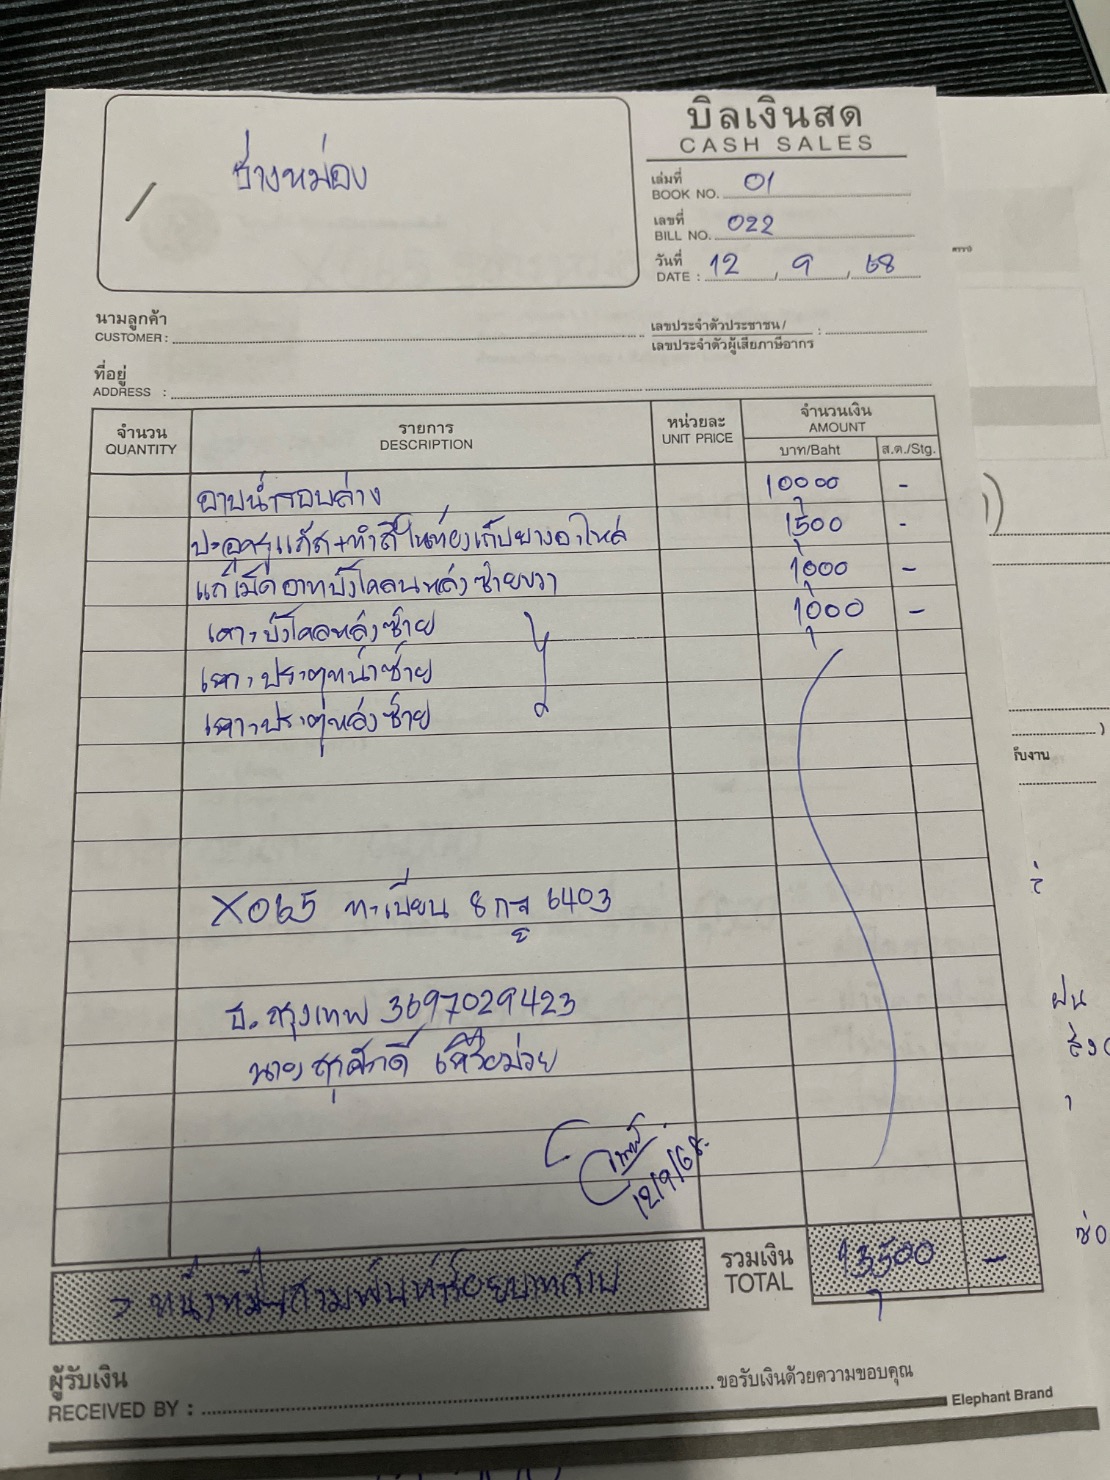 ช่างหม่อง
บิลเงินสด
CASH SALES
เล่มที่
BOOK NO. 01
เลขที่
BILL NO. 022
วันที่
DATE : 12 , 9 , 68
นามลูกค้า
CUSTOMER :
เลขประจำตัวประชาชน/
เลขประจำตัวผู้เสียภาษีอากร :
ที่อยู่
ADDRESS :
จำนวน รายการ หน่วยละ จำนวนเงิน
QUANTITY DESCRIPTION UNIT PRICE AMOUNT
บาท/Baht ส.ต./Stg.
อาบน้ำรอบล่าง 10000 -
ปะอู+ทำสีในท้องเก็บยางอะไหล่ 1,500 -
แก้เม็ด บังโคลนหลังซ้ายขวา 1,000 -
เคาะบังโคลหลังซ้าย 1,000 -
เคาะประตูหน้าซ้าย
เคาะประตูหลังซ้าย
X065 ทะเบียน 8กฐ 6403
ธ. กรุงเทพ 3697029423
นาย
12/9/68
หนึ่งหมื่นสามพันห้าร้อยบาทถ้วน
รวมเงิน
TOTAL 13,500 -
ผู้รับเงิน
RECEIVED BY : ขอรับเงินด้วยความขอบคุณ
Elephant Brand
รับงาน